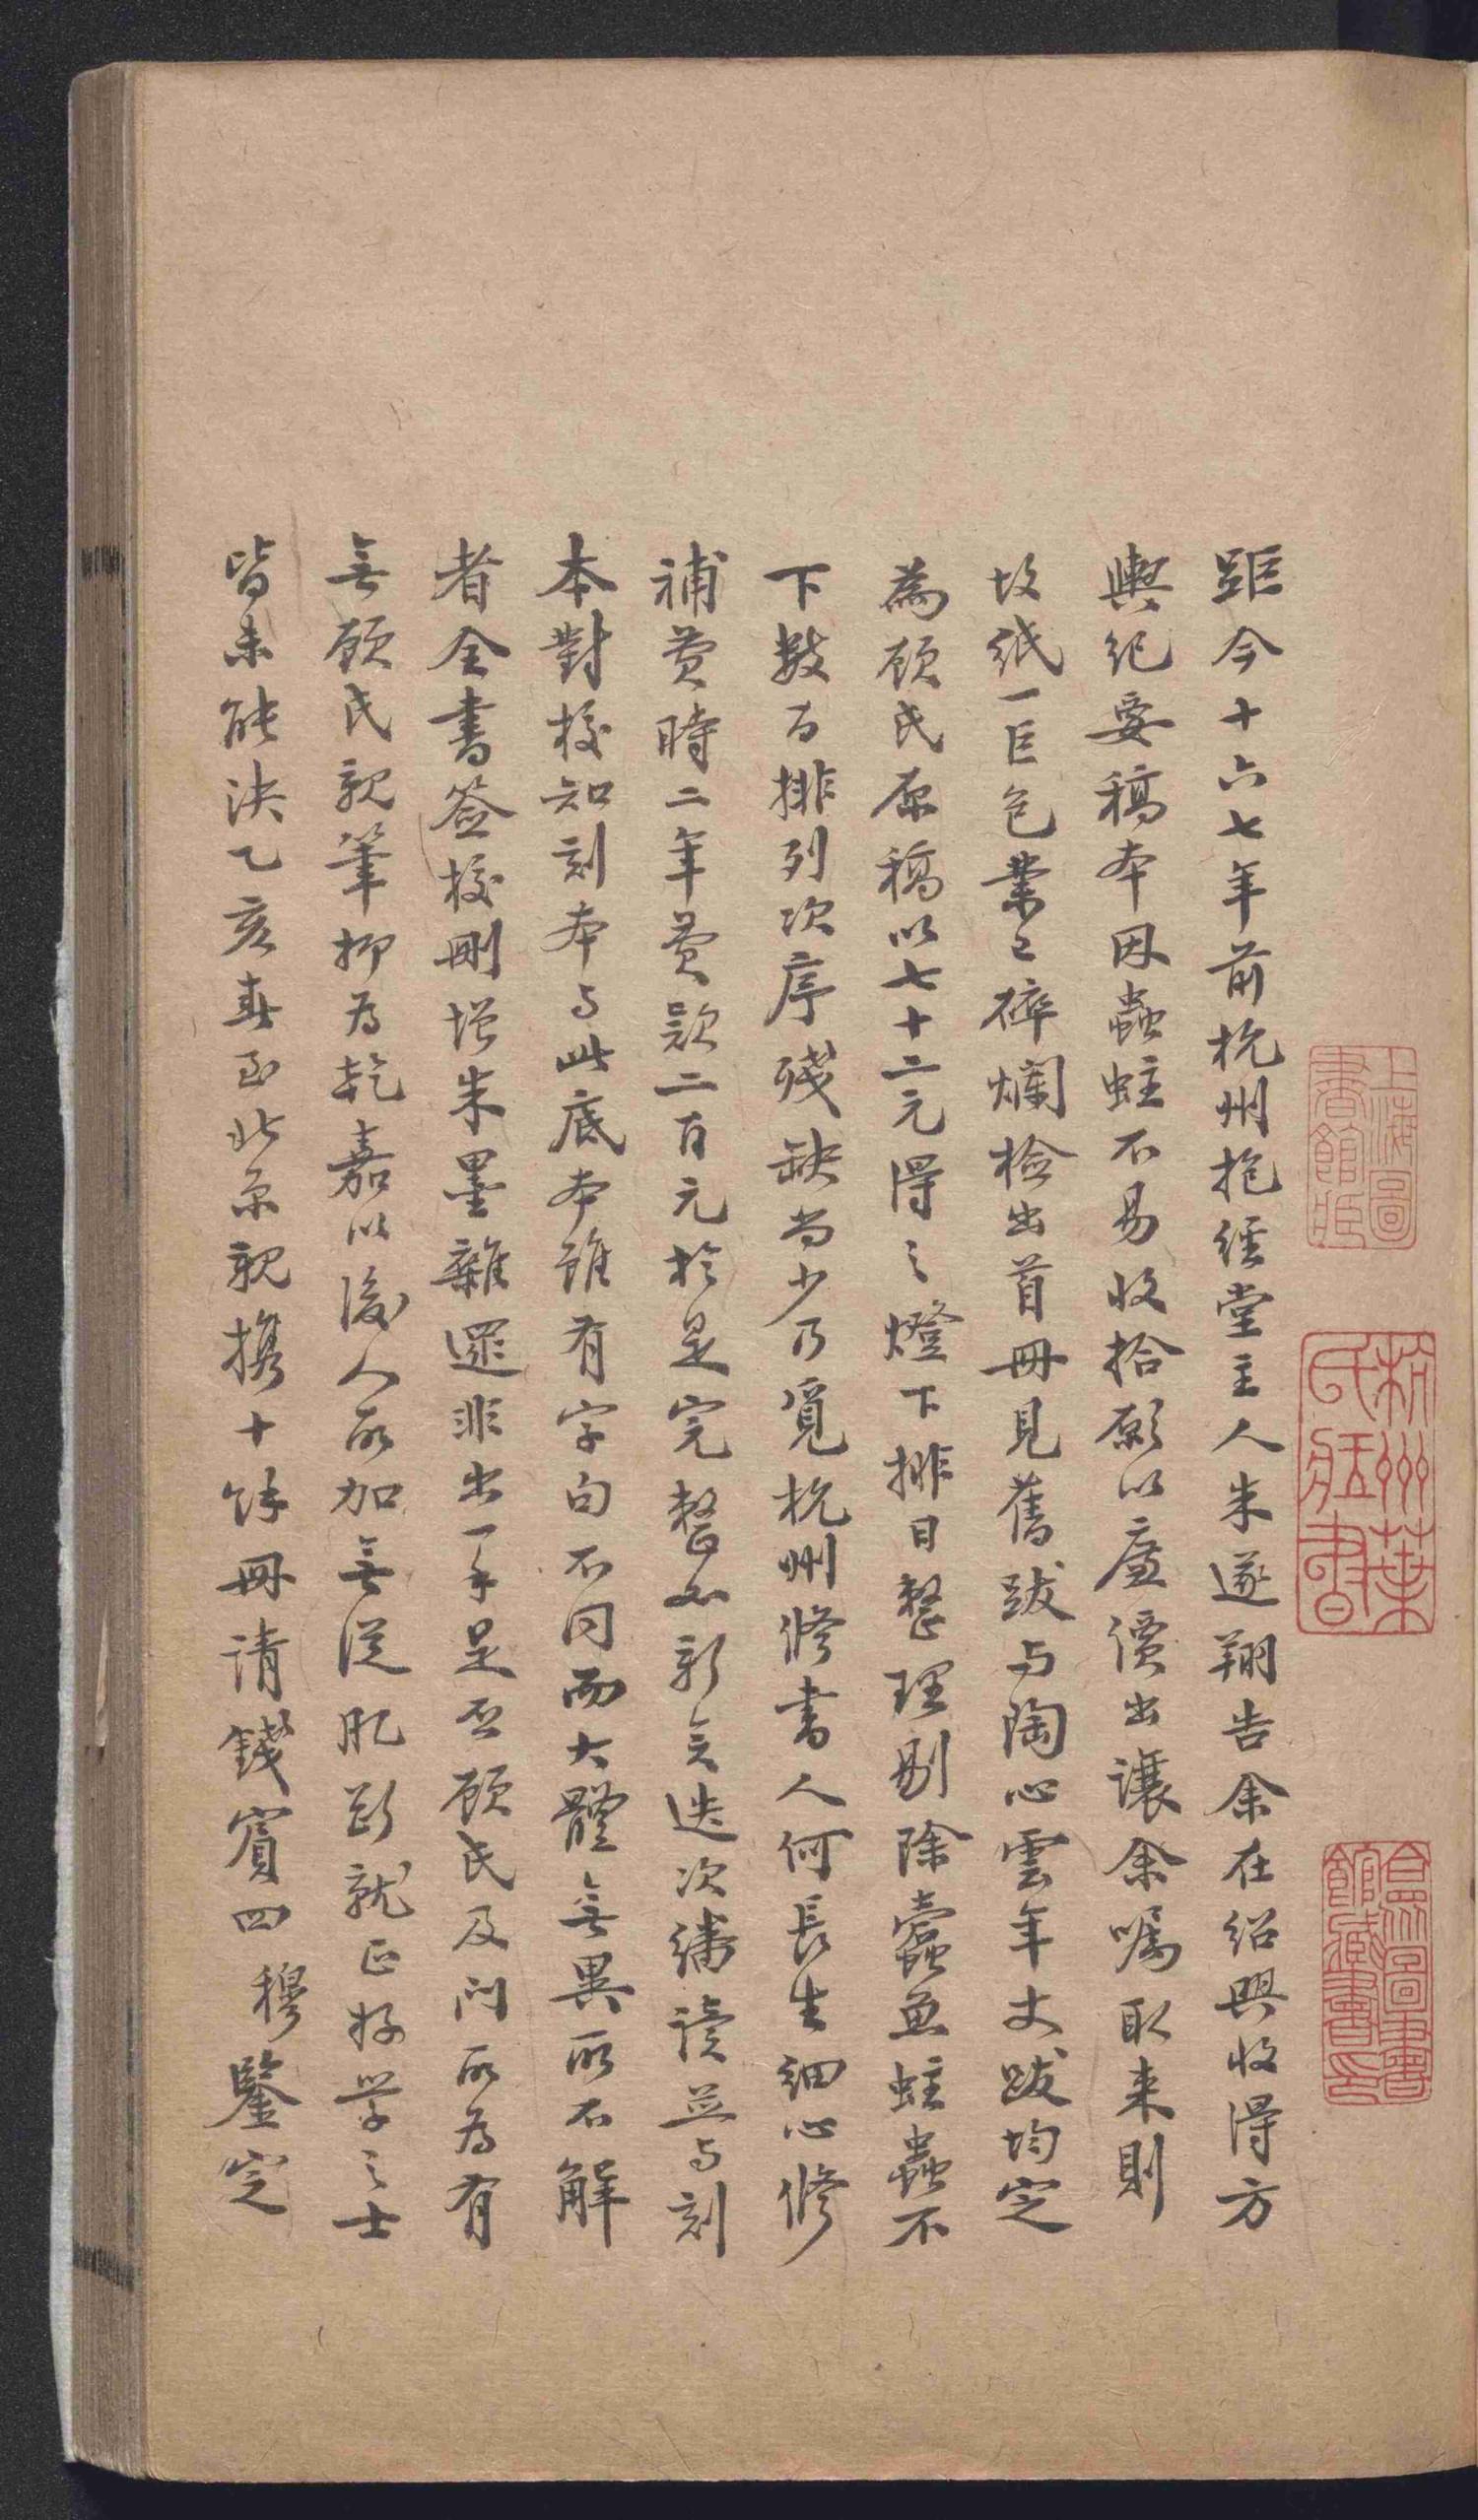 距今十六七年前杭州抱經堂主人朱遂翔告余在紹興收得方
輿紀要稿本因蟲蛀不易收拾願以廉價出讓余囑取来則
故紙一巨包業已碎爛檢出首冊見舊跋与陶心雲年丈跋均定
為顧氏原稿以七十二元得之燈下排日整理剔除蠹魚蛀蟲不
下數百排列次序殘缺尚少乃覓杭州修書人何長生細心修
補費時二年費款二百元於是完整如新矣迭次繙讀並与刻
本對校知刻本与此底本雖有字句不同而大體無異所不解
者全書簽校刪增朱墨雜遝非出一手是否顧氏及门所為有
無顧氏親筆抑为乾嘉以後人所加無從肊斷就正好学之士
皆未能決乙亥春至北京親携十餘冊请錢賓四穆鑒定
上海圖書館藏
杭州葉氏藏書
合眾圖書館藏書印